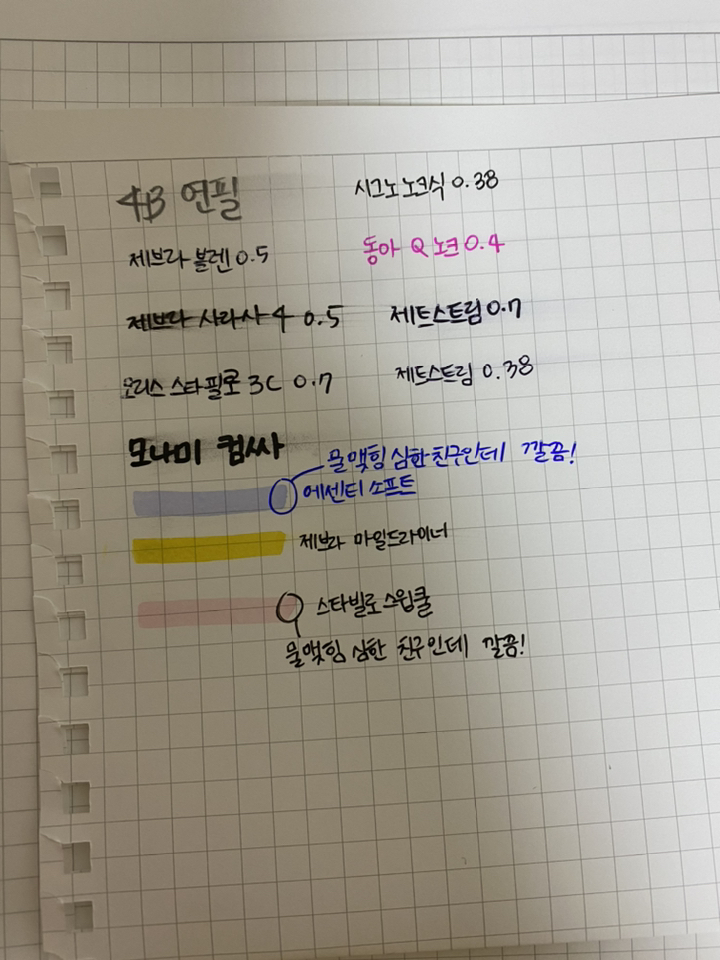 4B 연필
시그노 노크식 0.38
제브라 블렌 0.5
동아 Q 노크 0.4
제브라 사라사 4 0.5
제트스트림 0.7
스타필로 3C 0.7
제트스트림 0.38
모나미 컴싸
물맺힘 심한 친구인데 깔끔!
에센티 소프트
제브라 마일드라이너
스타빌로 스윙쿨
물맺힘 심한 친구인데 깔끔!